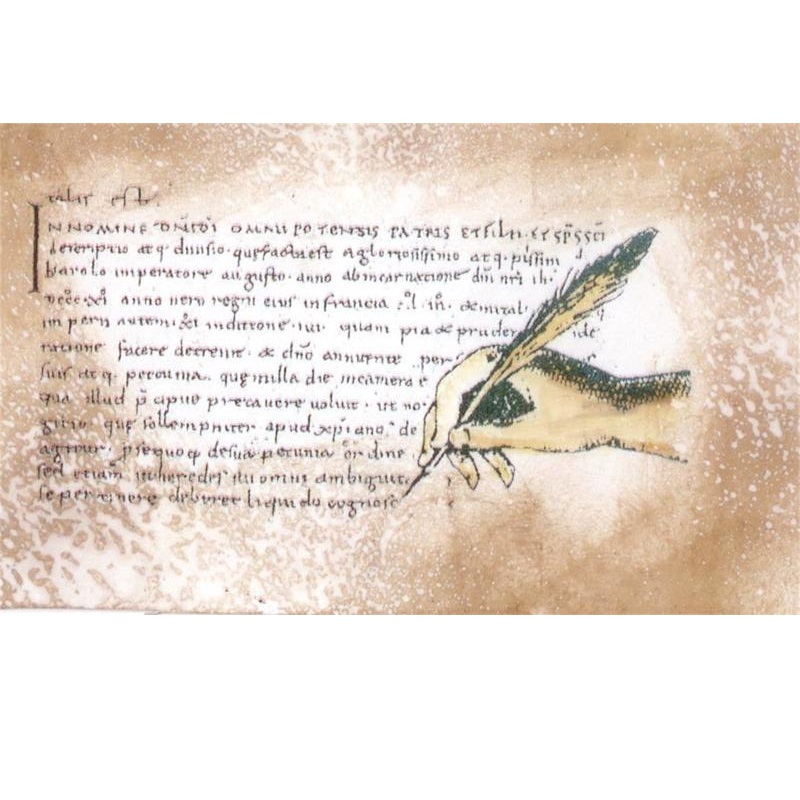 talis est.
IN NOMINE DNI DI OMNIPOTENTIS PATRIS ET FILII ET SPS SCI
descriptio atq. divisio. que facta est a gloriosissimo atq. piissim
karolo imperatore augusto. anno ab incarnatione dni nri ih
dcccxi anno vero regni eius in francia & in ital
imperii autem xi indictione iiii. quam pia & pruden ide
ratione facere decrevit. & dno annuente per
suis atq. pecunia. que in illa die in camera
qua illud p̄cipue precavere voluit. ut no
que sollempniter apud xpianos de
agitur. p̄ se quoq. de sua pecunia ordine
sed etiam ut heredes sui omni ambiguit
se pertinere deberet liquido cognosc